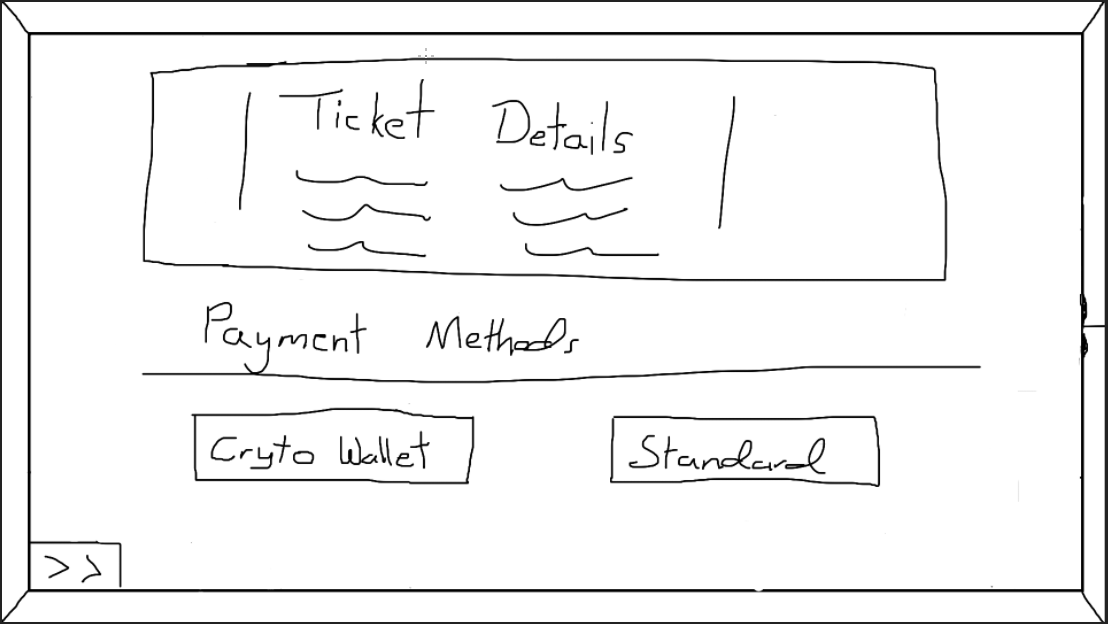 Ticket Details
Payment Methods
Cryto Wallet
Standard
>>